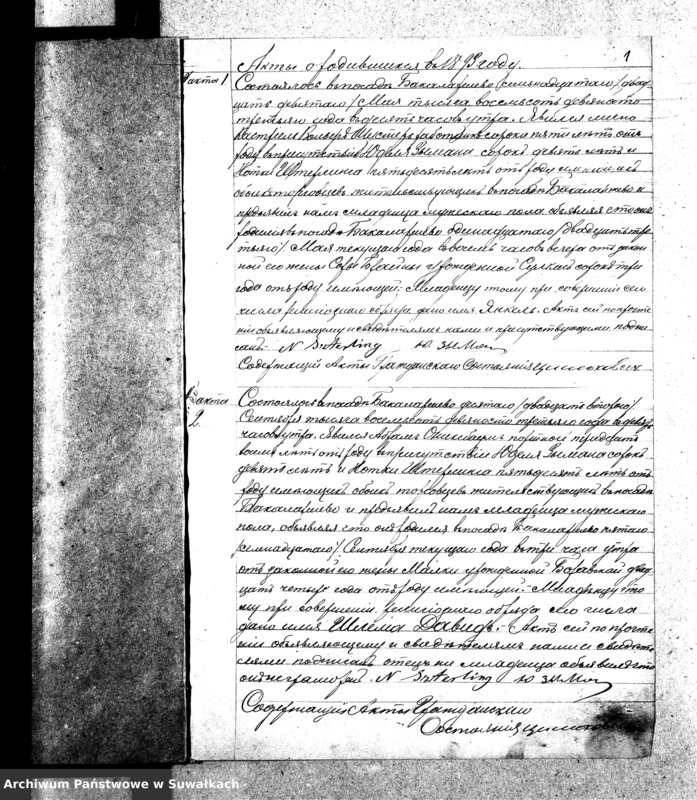 1
Акты о родившихся в 1893 году.
акта 1
Состоялось в посаде Бакаларжево семьнадцатаго /двад-
цать девятаго/ Мая тысяча восемьсотъ девяносто
третьяго года въ десять часовъ утра. Явился лично
работникъ сорока пяти лѣтъ отъ
роду въ присутствіи Юделя Зымана сорокъ девять лѣтъ и
Нотки Штерлинга пятьдесятъ лѣтъ отъ роду имѣющихъ
обоихъ торговцевъ жительствующихъ въ посадѣ Бакаларжево и
предъявилъ намъ младенца мужескаго пола объявляя что онъ
родился въ посадѣ Бакаларжево одинадцатаго /двадцать тре-
тьяго/ Мая текущаго года въ восемь часовъ вечера отъ закон-
ной его жены урожденной сорокъ три
года отъ роду имѣющей. Младенцу тому при совершеніи сего
числа религіознаго обряда дано имя Янкель. Актъ сей по прочте-
ніи объявляющему и свидѣтелямъ нами и присутствующими подпи-
санъ. N Szterling Ю Зыман
Содержащій Акты Гражданскаго Состоянія
акта
2.
Состоялось въ посадѣ Бакаларжево десятаго /двадцать втораго/
Сентября тысяча восемьсотъ девяносто третьяго года въ девять
часовъ утра. Явился Абрамъ портной тридцать
восемь лѣтъ отъ роду въ присутствіи Юделя Зымана сорокъ
девять лѣтъ и Нотки Штерлинга пятьдесятъ лѣтъ отъ
роду имѣющихъ обоихъ торговцевъ жительствующихъ въ посадѣ
Бакаларжево и предъявилъ намъ младенца мужескаго
пола, объявляя что онъ родился въ посадѣ Бакаларжево пятаго
/семнадцатаго/ Сентября текущаго года въ три часа утра
отъ законной его жены Малки урожденной двад-
цать четыре года отъ роду имѣющей. Младенцу то-
му при совершеніи религіознаго обряда сего числа
дано имя Шлема Давидъ. Актъ сей по прочте-
ніи объявляющему и свидѣтелямъ нами и свидѣте-
лями подписанъ отецъ же младенца объявилъ что
онъ неграмотный. N Szterling Ю Зыман
Содержащій Акты Гражданскаго
Состоянія
Archiwum Państwowe w Suwałkach